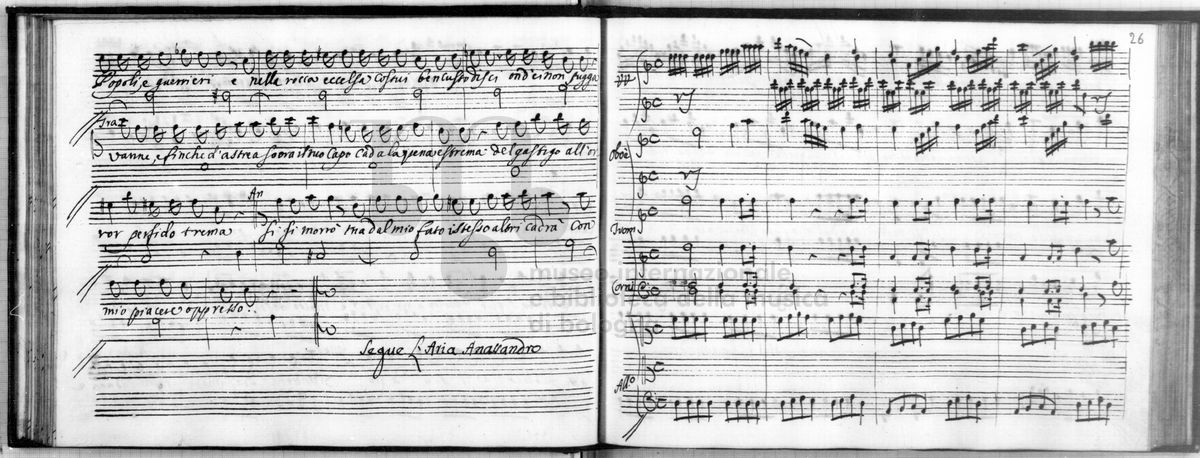 Popoli, e guerrieri e nella rocca eccelsa costui ben custodisci ond'ei non fugga
Tra
vanne, e finche d'astrea sovra il tuo capo cada la pena estrema del gastigo all'or
An
ror perfido trema Si si morrò ma dal mio fato istesso altri cadrà con
mio piacere oppresso.
Segue L'Aria Anassandro
26
VV
Oboè
Trom
Corni
All.o
museo internazionale
e biblioteca della musica
di bologna